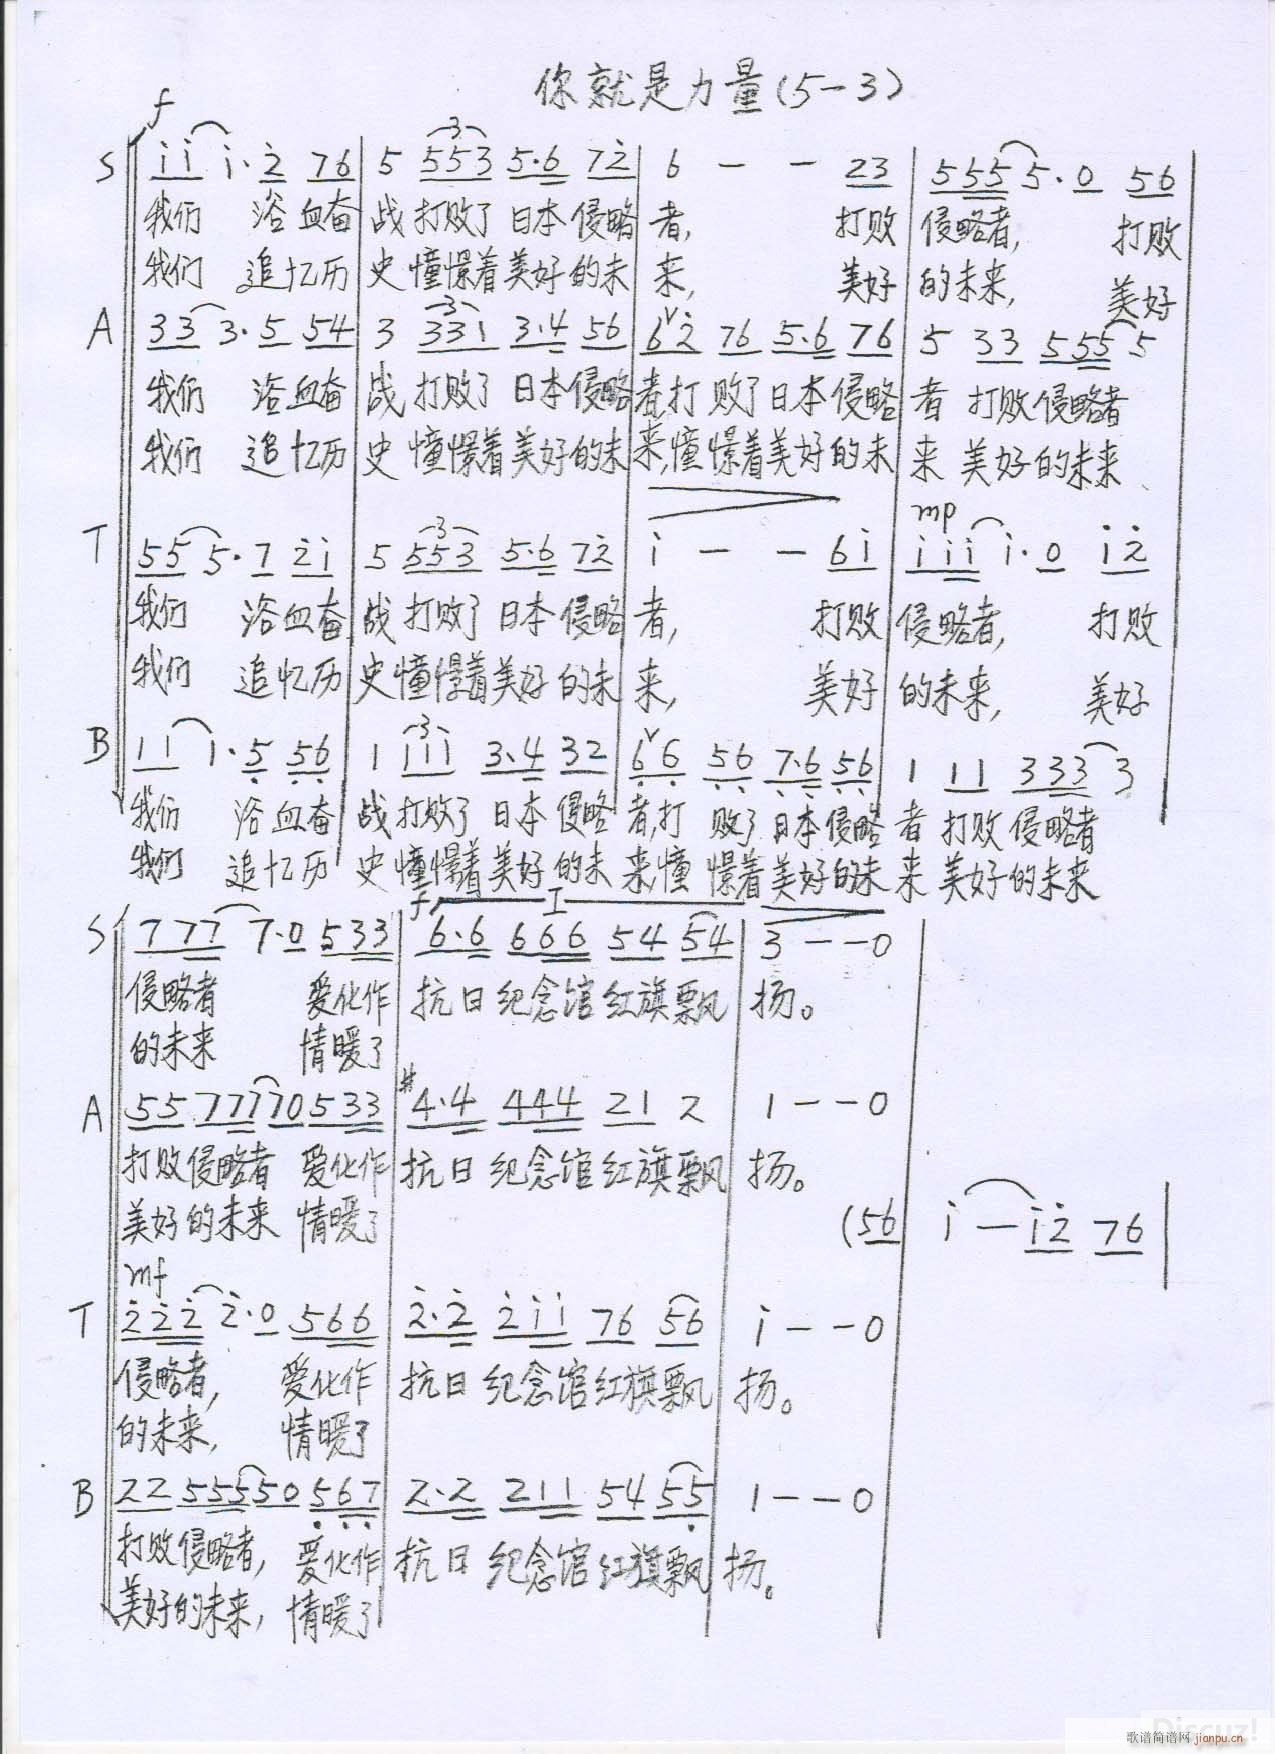 你就是力量(5-3)
f
S i i i· 2 7 6 | 5 5 5 3 5·6 7 2 | 6 — — 2 3 | 5 5 5 5·0 5 6
我们 浴血奋 战打败了日本侵略 者, 打败 侵略者, 打败
我们 追忆历 史憧憬着美好的未 来, 美好 的未来, 美好
A 3 3 3·5 5 4 | 3 3 3 1 3·4 5 6 | 6 2 7 6 5·6 7 6 | 5 3 3 5 5 5 5
我们 浴血奋 战打败了日本侵略 者,打败了日本侵略 者打败侵略者
我们 追忆历 史憧憬着美好的未 来,憧憬着美好的未 来美好的未来
mp
T 5 5 5·7 2 i | 5 5 5 3 5·6 7 2 | i — — 6 i | i i i i·0 i 2
我们 浴血奋 战打败了日本侵略 者, 打败 侵略者, 打败
我们 追忆历 史憧憬着美好的未 来, 美好 的未来, 美好
B 1 1 1·5 5 6 | 1 1 1 1 3·4 3 2 | 6 6 5 6 7·6 5 6 | 1 1 1 3 3 3 3
我们 浴血奋 战打败了日本侵略 者,打败了日本侵略 者打败侵略者
我们 追忆历 史憧憬着美好的未 来,憧憬着美好的未 来美好的未来
f I
S 7 7 7 7·0 5 3 3 | 6·6 6 6 6 5 4 5 4 | 3 — — 0
侵略者 爱化作 抗日纪念馆红旗飘 扬。
的未来 情暖了
A 5 5 7 7 7 7 0 5 3 3 | #4·4 4 4 4 2 1 2 | 1 — — 0
打败侵略者 爱化作 抗日纪念馆红旗飘 扬。
美好的未来 情暖了
(5 6 i — i 2 7 6 |
mf
T 2 2 2 2·0 5 6 6 | 2·2 2 i i 7 6 5 6 | i — — 0
侵略者, 爱化作 抗日纪念馆红旗飘 扬。
的未来, 情暖了
B 2 2 5 5 5 5 0 5 6 7 | 2·2 2 1 1 5 4 5 5 | 1 — — 0
打败侵略者, 爱化作 抗日纪念馆红旗飘 扬。
美好的未来, 情暖了
Discuz!
歌谱简谱网 jianpu.cn